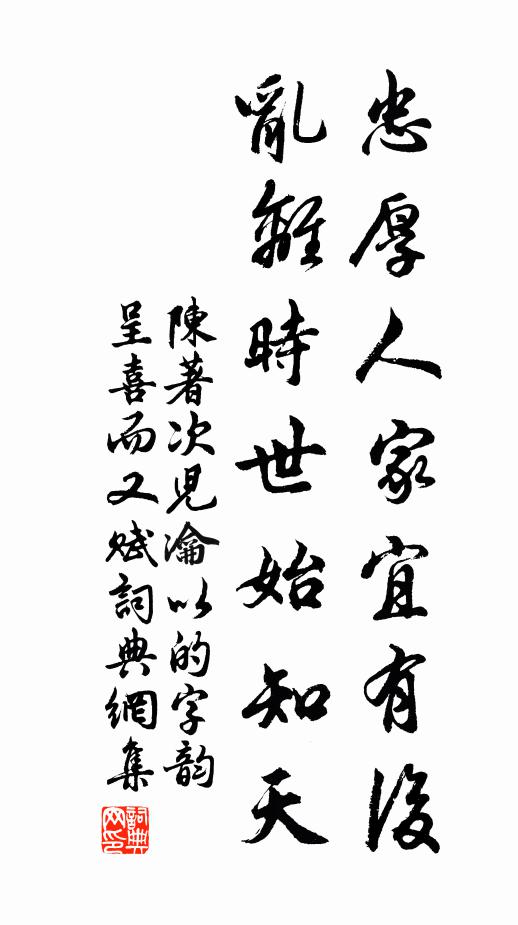 忠厚人家宜有後
亂離時世始知天
陳著次兒瀹以的字韵
呈喜而又賦詞典網集
詞典網印